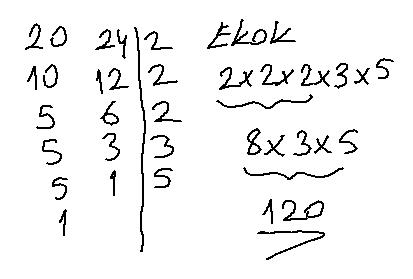 20 24 2
10 12 2
5 6 2
5 3 3
5 1 5
1
Ekok
2x2x2x3x5
8x3x5
120